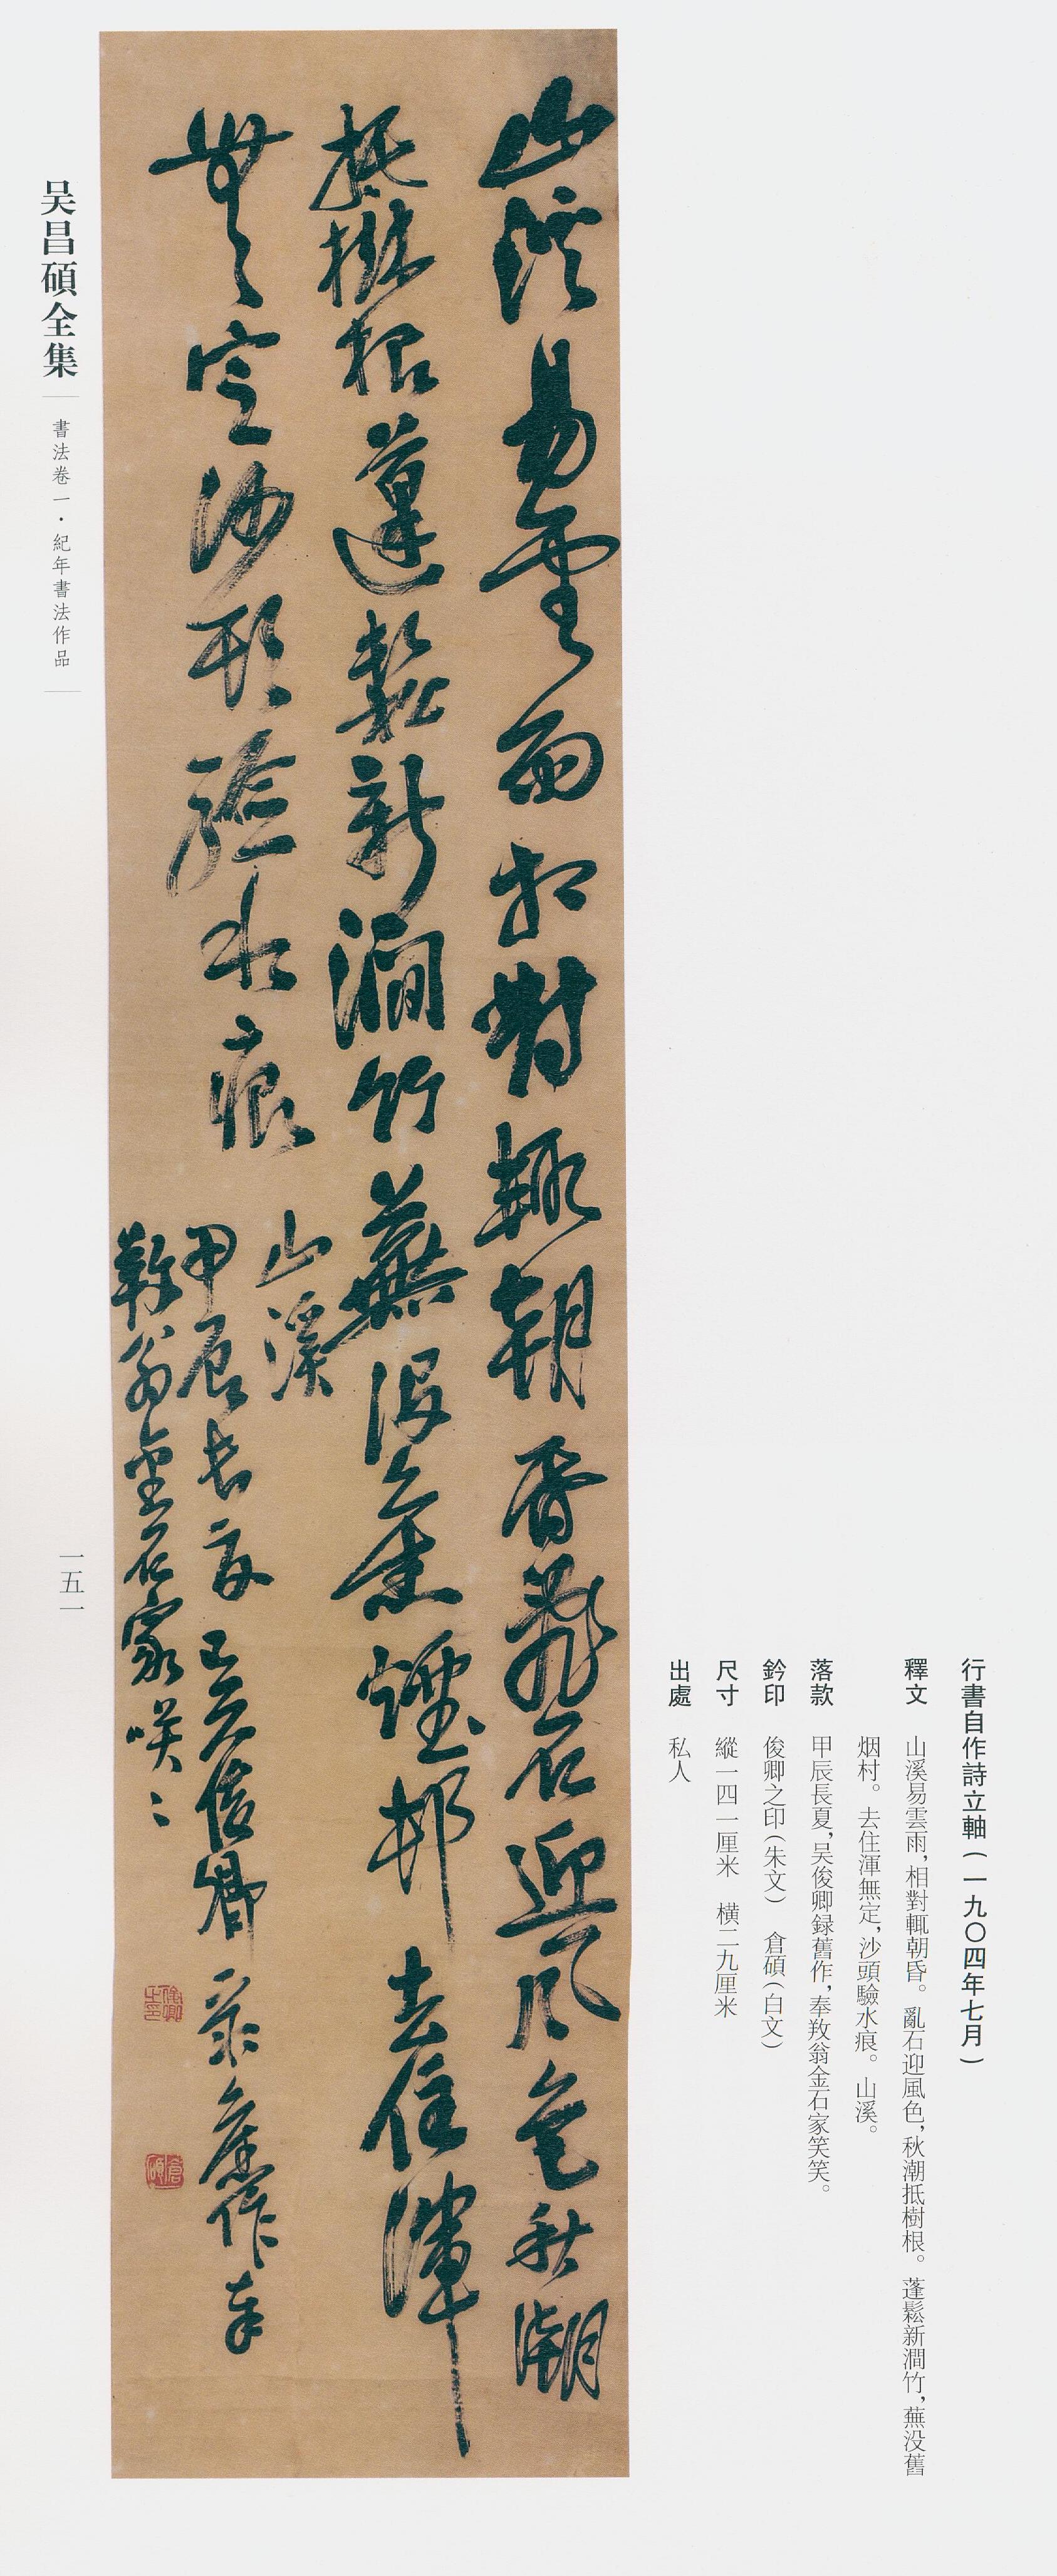 行書自作詩立軸(一九〇四年七月)
釋文　山溪易雲雨，相對輒朝昏。亂石迎風色，秋潮抵樹根。蓬鬆新澗竹，蕪没舊
烟村。去住渾無定，沙頭驗水痕。山溪。
落款　甲辰長夏，吴俊卿録舊作，奉敩翁金石家笑笑。
鈐印　俊卿之印(朱文)　倉碩(白文)
尺寸　縱一四一厘米　橫二九厘米
出處　私人
山溪易雲雨相對輒朝昏亂石迎風色秋潮
抵樹根蓬鬆新澗竹蕪没舊煙邨去住渾
無定沙頭驗水痕
山溪
甲辰長夏吴俊卿录舊作奉
敩翁金石家咲〻
俊卿之印
倉碩
吴昌碩全集
書法卷一・紀年書法作品
一五一